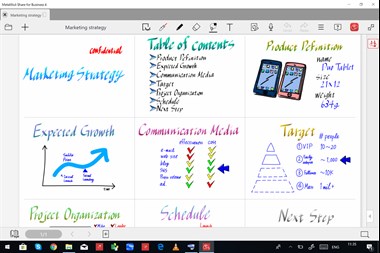 MetaMoJi Share for Business 2
Marketing strategy
confidential
Marketing Strategy
Table of Contents
Product Definition
Expected Growth
Communication Media
Target
Project Organization
Schedule
Next Step
Product Definition
name
Duo Tablet
size
21x12
weight
Expected Growth
time
Communication Media
effectiveness
cost
e-mail
web site
blog
SNS
ad.
Target
# people
① VIP
~ 20
②
~ 1,000
③
~ 10K
④ Mass
1 mil+
Project Organization
Schedule
Next Step
1/1